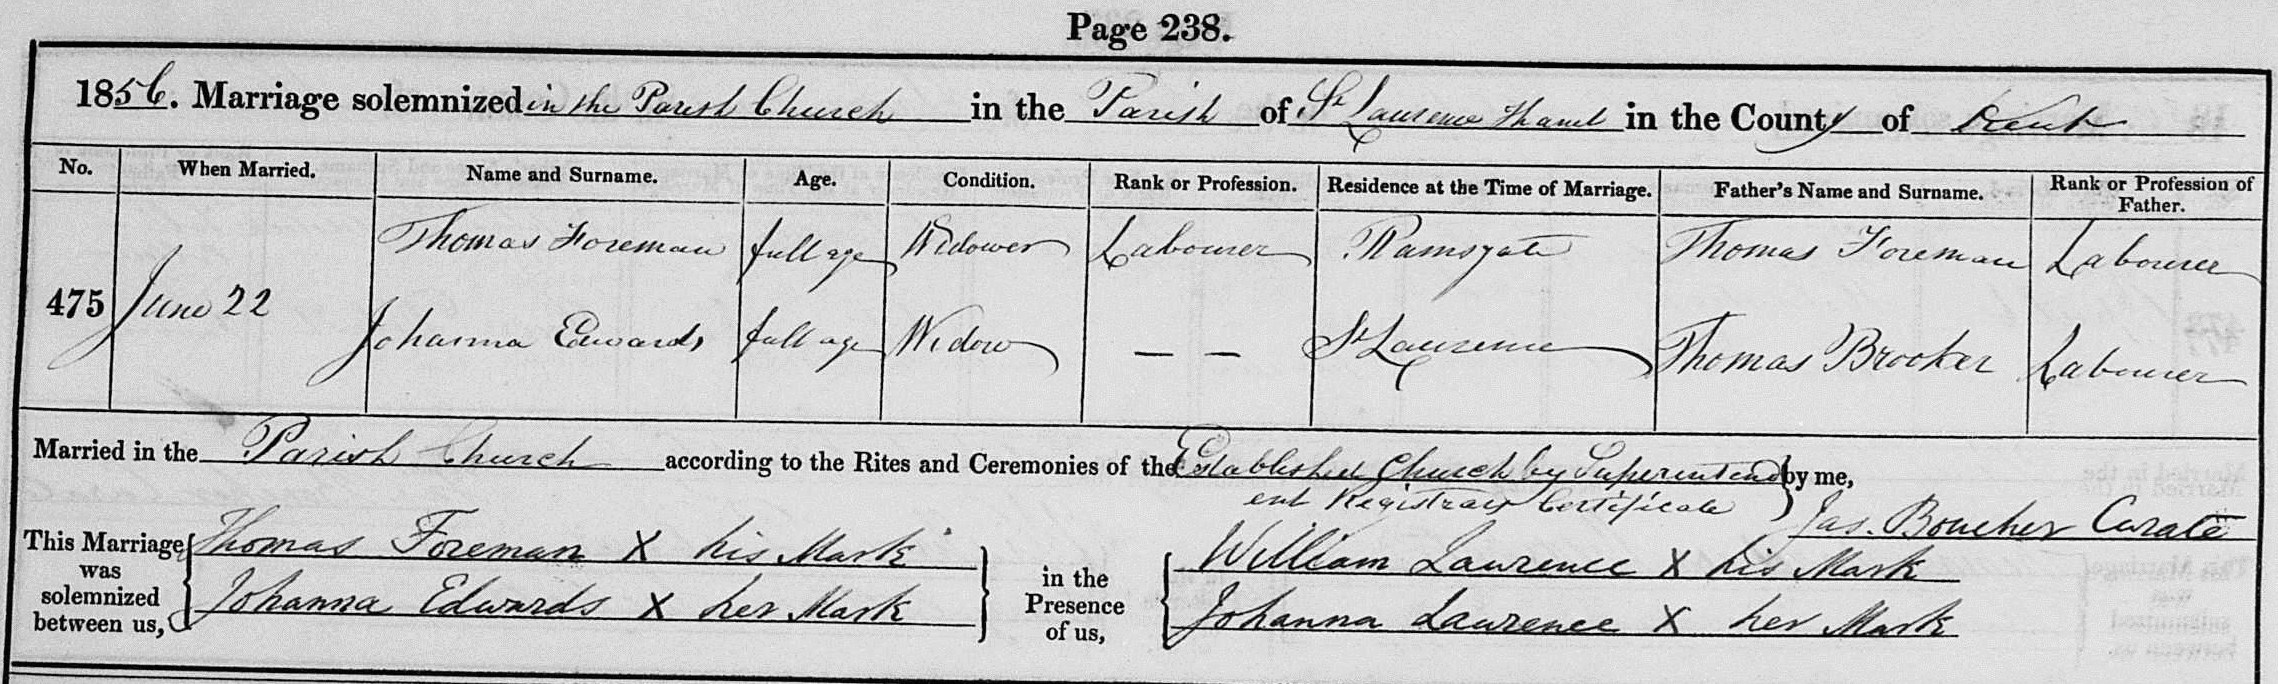 Page 238.
1856. Marriage solemnized in the Parish Church in the Parish of St Laurence Thanet in the County of Kent
No. When Married. Name and Surname. Age. Condition. Rank or Profession. Residence at the Time of Marriage. Father's Name and Surname. Rank or Profession of Father.
475 June 22
Thomas Foreman full age Widower Labourer Ramsgate Thomas Foreman Labourer
Johanna Edwards full age Widow — — St Laurence Thomas Brooker Labourer
Married in the Parish Church according to the Rites and Ceremonies of the Established Church by Superintend by me,
ent Registrars Certificate Jas. Boucher Curate
This Marriage was solemnized between us,
Thomas Foreman X his Mark
Johanna Edwards X her Mark
in the Presence of us,
William Lawrence X his Mark
Johanna Lawrence X her Mark